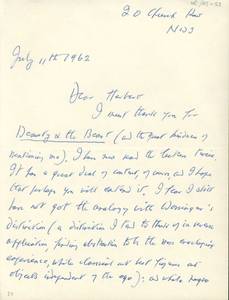 20 Church Row
NW3
July 11th 1962
Dear Herbert
I must thank you for
Beauty & the Beast (and the kindness of
mentioning me). I have now read the lecture twice.
It has a great deal of content, of course, and I hope
that perhaps you will extend it. I fear I still
have not got the analogy with Worringer's
distinction (a distinction I tend to think of in reverse
application, finding abstraction to be the
experience, while classical art
objects independent of the ego): as while